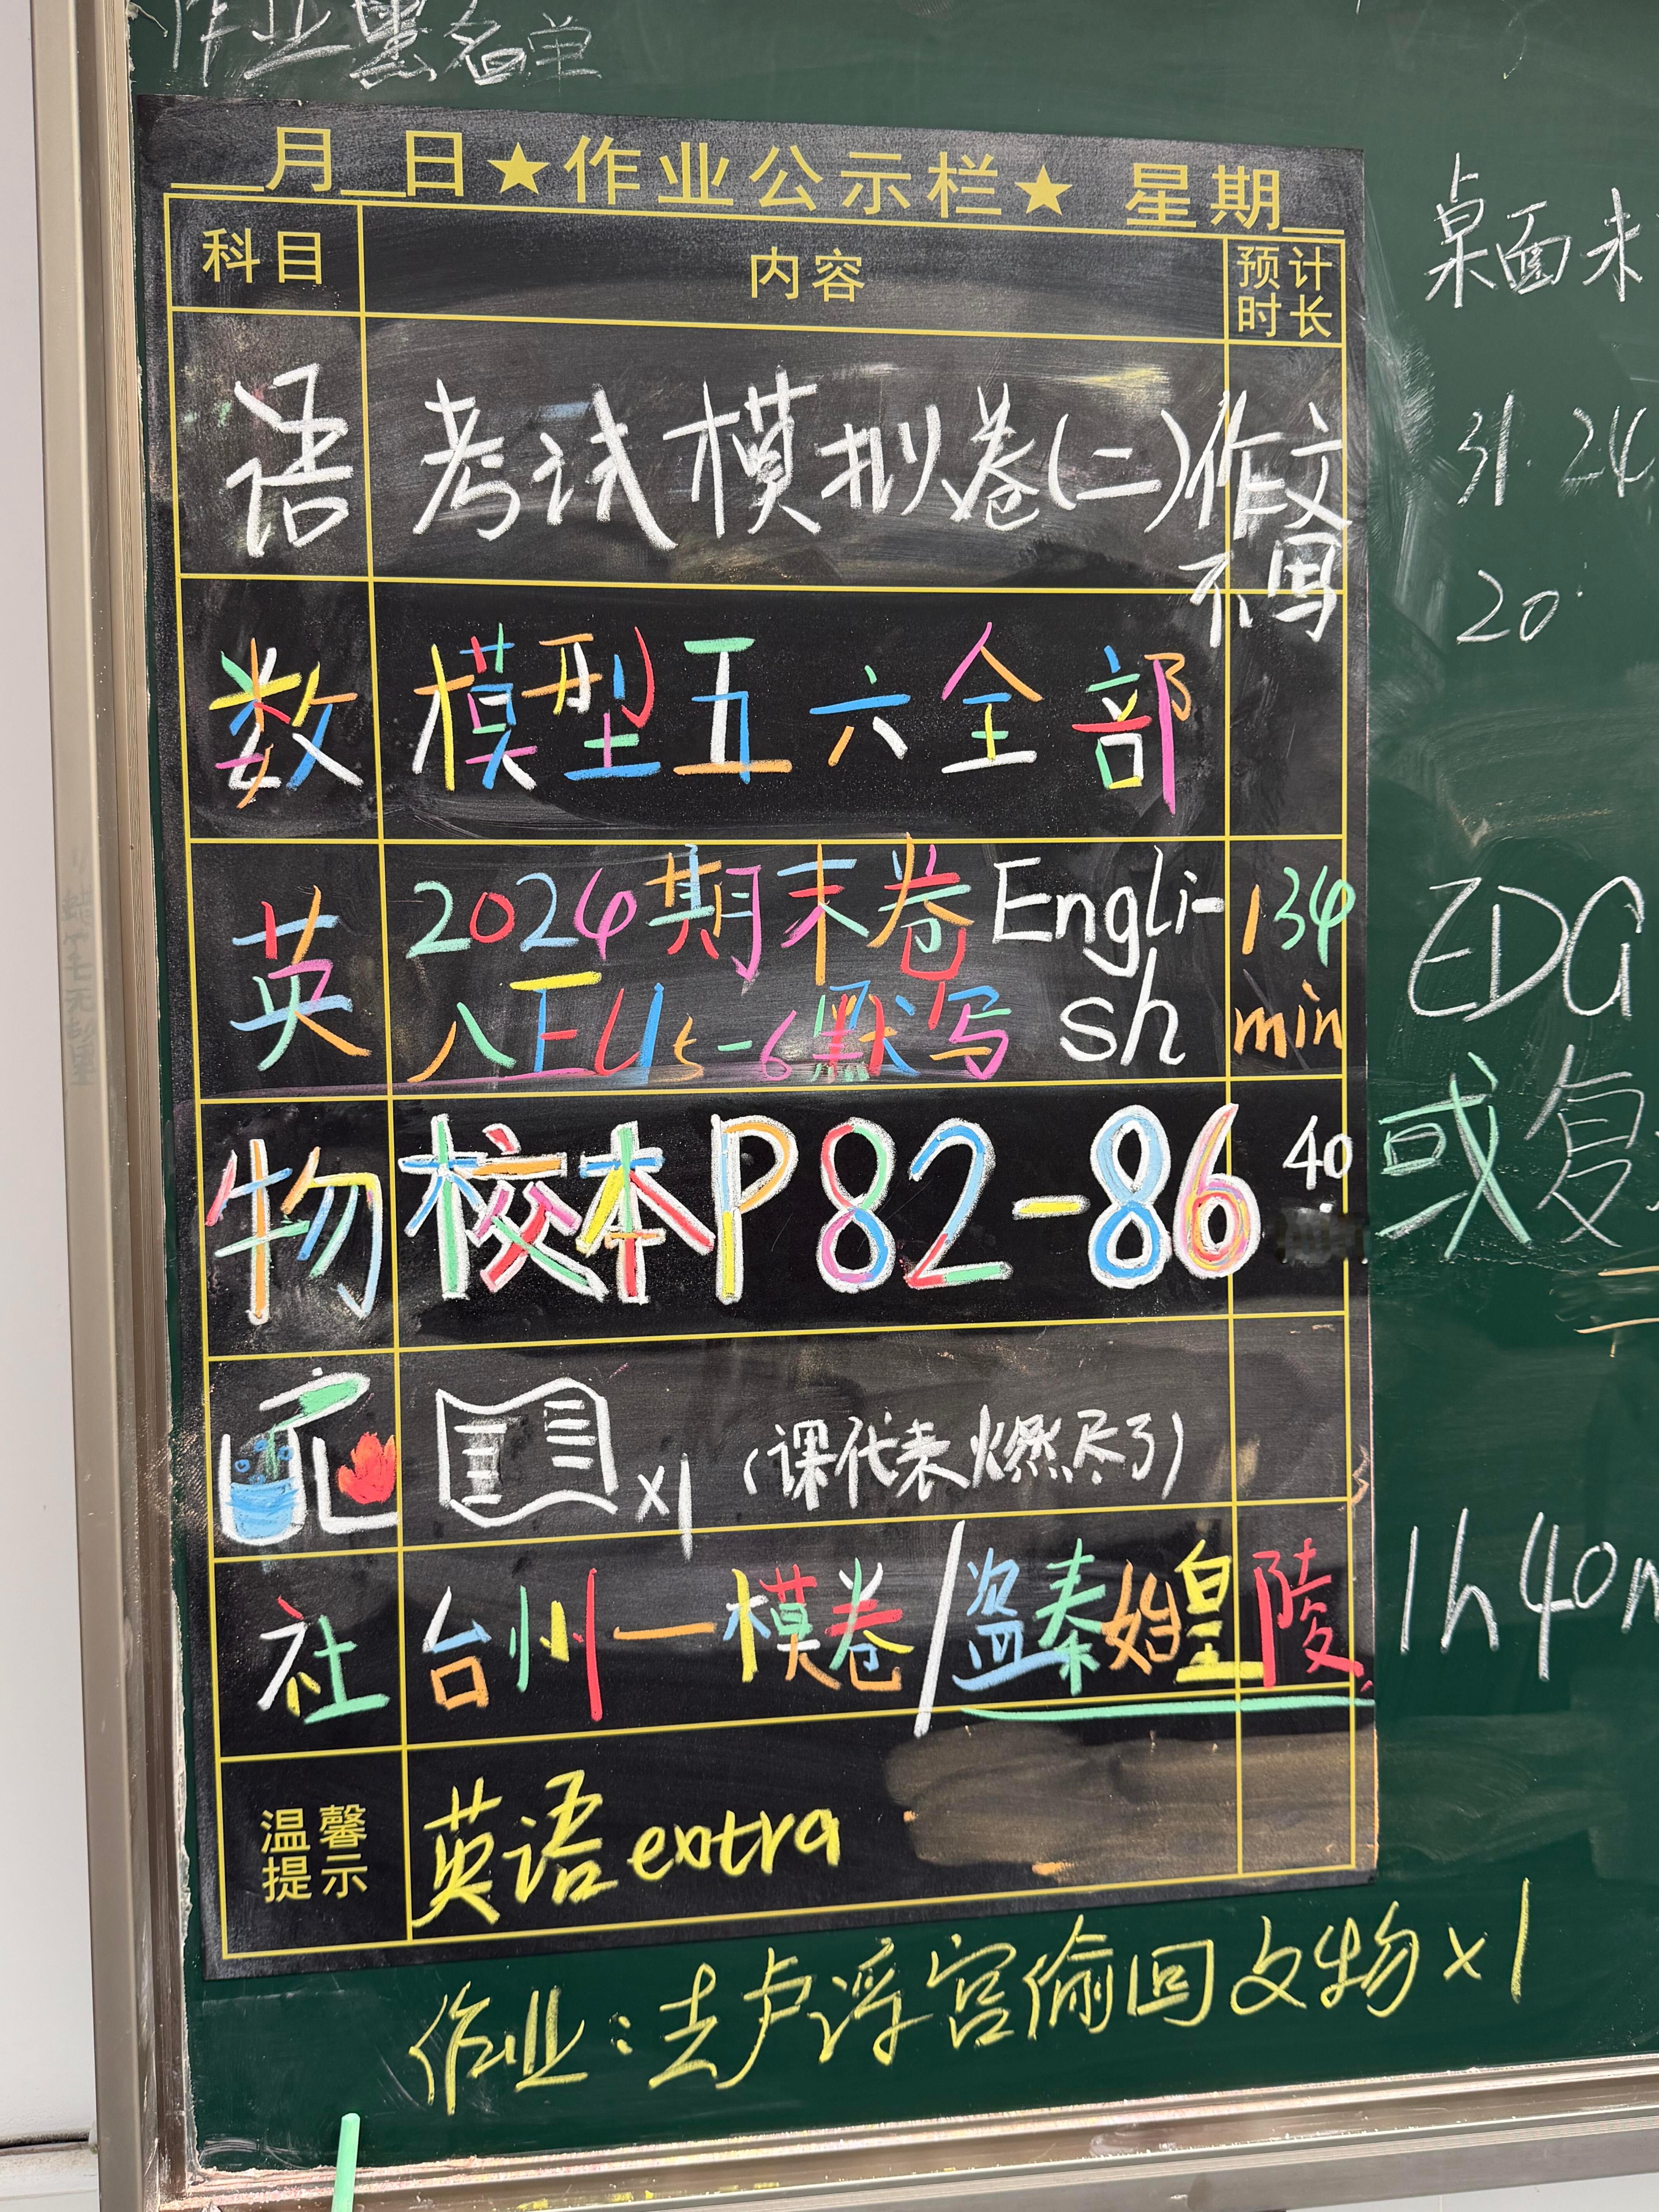 作业黑名单
__月__日★作业公示栏★ 星期__
科目 内容 预计时长
语 考试模拟卷(二)作文不写
数 模型五六全部
英 2024期末卷 Engli-sh 134min
八下U5-6默写
物 校本P82-86 40
x1 (课代表燃尽了)
社 台州一模卷/盗秦始皇陵
温馨提示 英语extra
作业:去卢浮宫偷回文物x1
桌面未
31.24
20
EDG
或复
1h40m